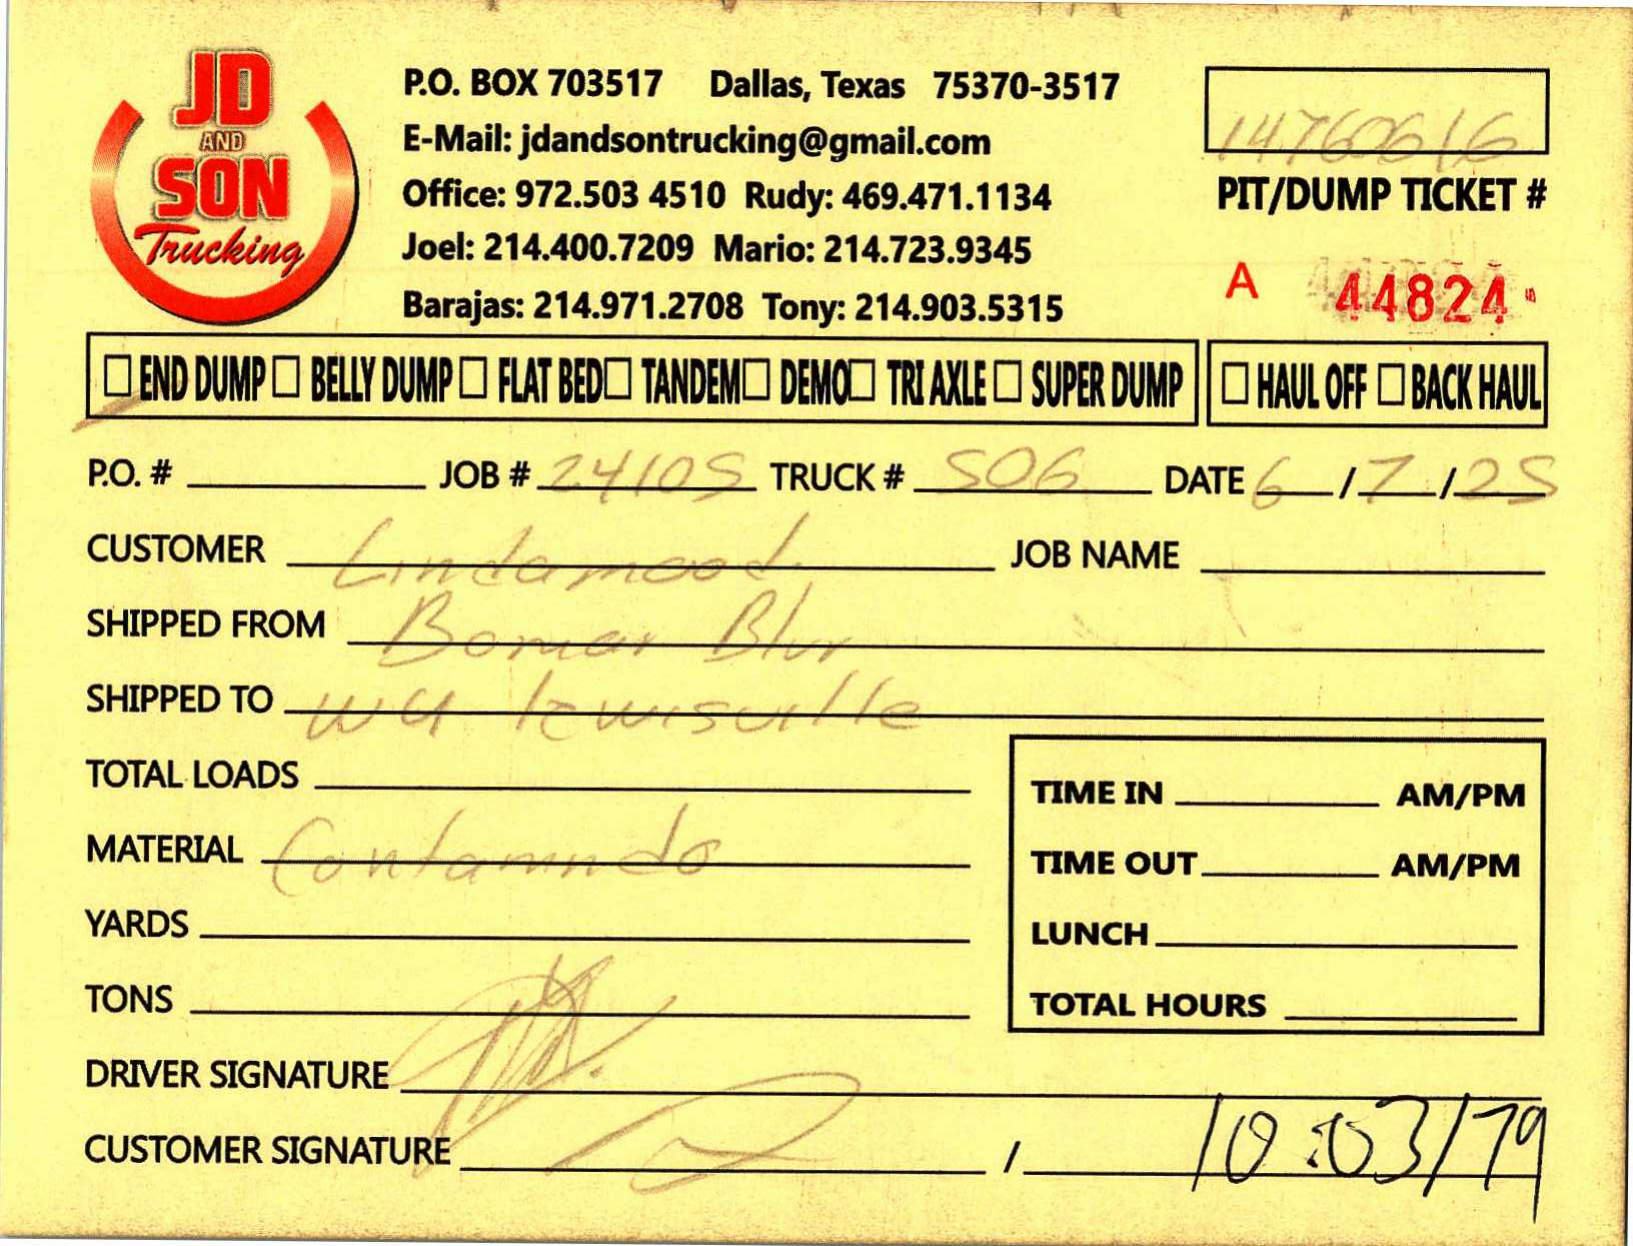 JD
AND
SON
Trucking
P.O. BOX 703517 Dallas, Texas 75370-3517
E-Mail: jdandsontrucking@gmail.com
Office: 972.503 4510 Rudy: 469.471.1134
Joel: 214.400.7209 Mario: 214.723.9345
Barajas: 214.971.2708 Tony: 214.903.5315
14760616
PIT/DUMP TICKET #
A 44824
☐ END DUMP ☐ BELLY DUMP ☐ FLAT BED ☐ TANDEM ☐ DEMO ☐ TRI AXLE ☐ SUPER DUMP ☐ HAUL OFF ☐ BACK HAUL
P.O. # JOB # 24105 TRUCK # 506 DATE 6/7/25
CUSTOMER Lindamood. JOB NAME
SHIPPED FROM Bomar Blvr
SHIPPED TO WM lewisville
TOTAL LOADS
MATERIAL Contamndo
YARDS
TONS
TIME IN AM/PM
TIME OUT AM/PM
LUNCH
TOTAL HOURS
DRIVER SIGNATURE
CUSTOMER SIGNATURE / 10:03/79